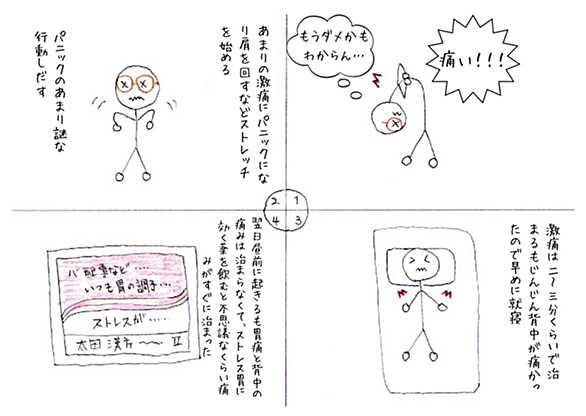 痛い!!!
もうダメかも
わからん…
あまりの激痛にパニックにな
り肩を回すなどストレッチ
を始める
パニックのあまり謎な
行動しだす
2 1
4 3
激痛は二~三分くらいで治
まるもじんじん背中が痛かっ
たので早めに就寝
翌日昼前に起きるも胃痛と背中の
痛みは治まらなくて、ストレス胃に
効く薬を飲むと不思議なくらい痛
みがすぐに治まった
いつも胃の調子…
ストレスが……
太田漢方〜〜 II